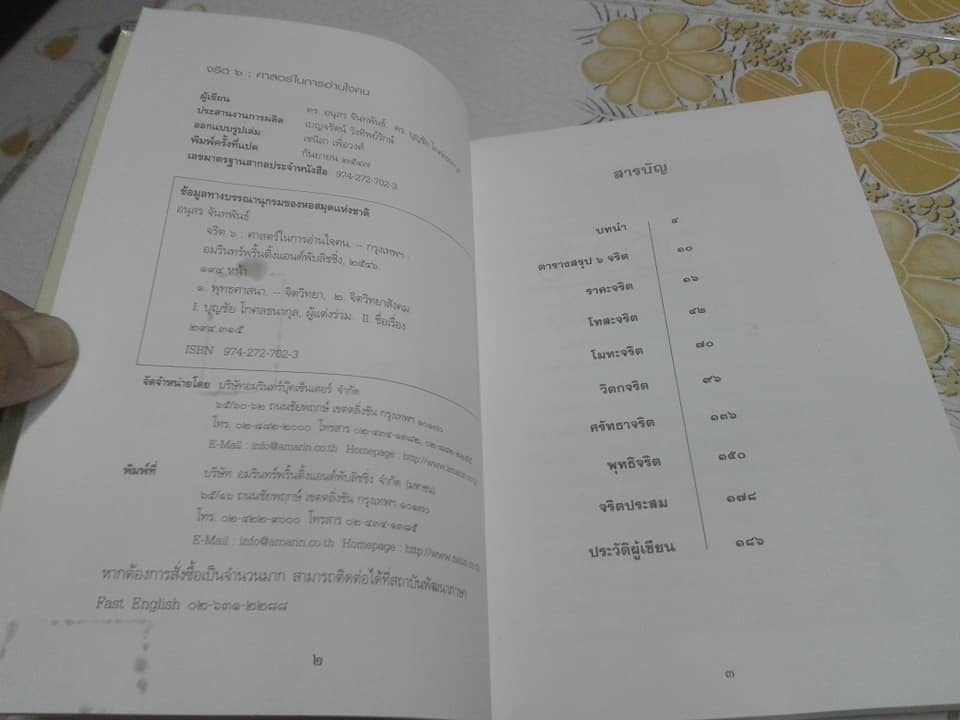 จริต ๖ : ศาสตร์ในการอ่านใจคน
ผู้เขียน ดร. อนุสร จันทพันธ์, ดร. บุญชัย โกศลธนากุล
ประสานงานการผลิต เบญจรัตน์ วังทิพย์รักษ์
ออกแบบรูปเล่ม เชนิสา เพื่อวงศ์
พิมพ์ครั้งที่แปด กันยายน ๒๕๔๗
เลขมาตรฐานสากลประจำหนังสือ 974-272-702-3
ข้อมูลทางบรรณานุกรมของหอสมุดแห่งชาติ
อนุสร จันทพันธ์
จริต ๖ : ศาสตร์ในการอ่านใจคน. -- กรุงเทพฯ :
อมรินทร์พริ้นติ้งแอนด์พับลิชชิ่ง, ๒๕๔๖.
๑๙๔ หน้า
๑. พุทธศาสนา. -- จิตวิทยา, ๒. จิตวิทยาสังคม
I. บุญชัย โกศลธนากุล, ผู้แต่งร่วม. II. ชื่อเรื่อง
๒๙๔.๓๑๕
ISBN 974-272-702-3
จัดจำหน่ายโดย บริษัทอมรินทร์บุ๊คเซ็นเตอร์ จำกัด
๖๕/๖๐-๖๒ ถนนชัยพฤกษ์ เขตตลิ่งชัน กรุงเทพฯ ๑๐๑๗๐
โทร. ๐๒-๘๘๒-๒๐๐๐ โทรสาร ๐๒-๔๓๔-๑๓๘๒,
E-Mail : info@amarin.co.th Homepage : http://www.amarin.co
พิมพ์ที่ บริษัท อมรินทร์พริ้นติ้งแอนด์พับลิชชิ่ง จำกัด (มหาชน)
๖๕/๑๖ ถนนชัยพฤกษ์ เขตตลิ่งชัน กรุงเทพฯ ๑๐๑๗๐
โทร. ๐๒-๔๒๒-๙๐๐๐ โทรสาร ๐๒-๔๓๔-๑๓๘๕
E-Mail : info@amarin.co.th Homepage : http://www.amarin.co.th
หากต้องการสั่งซื้อเป็นจำนวนมาก สามารถติดต่อได้ที่สถาบันพัฒนาภาษา
Fast English ๐๒-๖๓๑-๒๒๘๘
๒
สารบัญ
บทนำ ๙
ตารางสรุป ๖ จริต ๑๐
ราคะจริต ๑๖
โทสะจริต ๔๒
โมหะจริต ๗๐
วิตกจริต ๙๖
ศรัทธาจริต ๑๓๖
พุทธิจริต ๑๕๐
จริตประสม ๑๗๘
ประวัติผู้เขียน ๑๘๖
๓